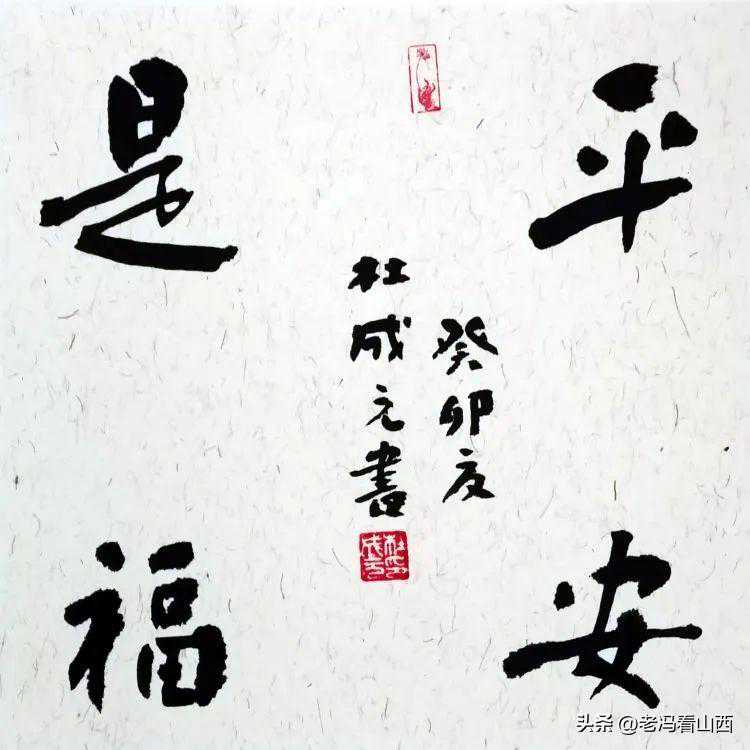 平安
是福
癸卯夏
杜成元書
头条 @老冯看山西